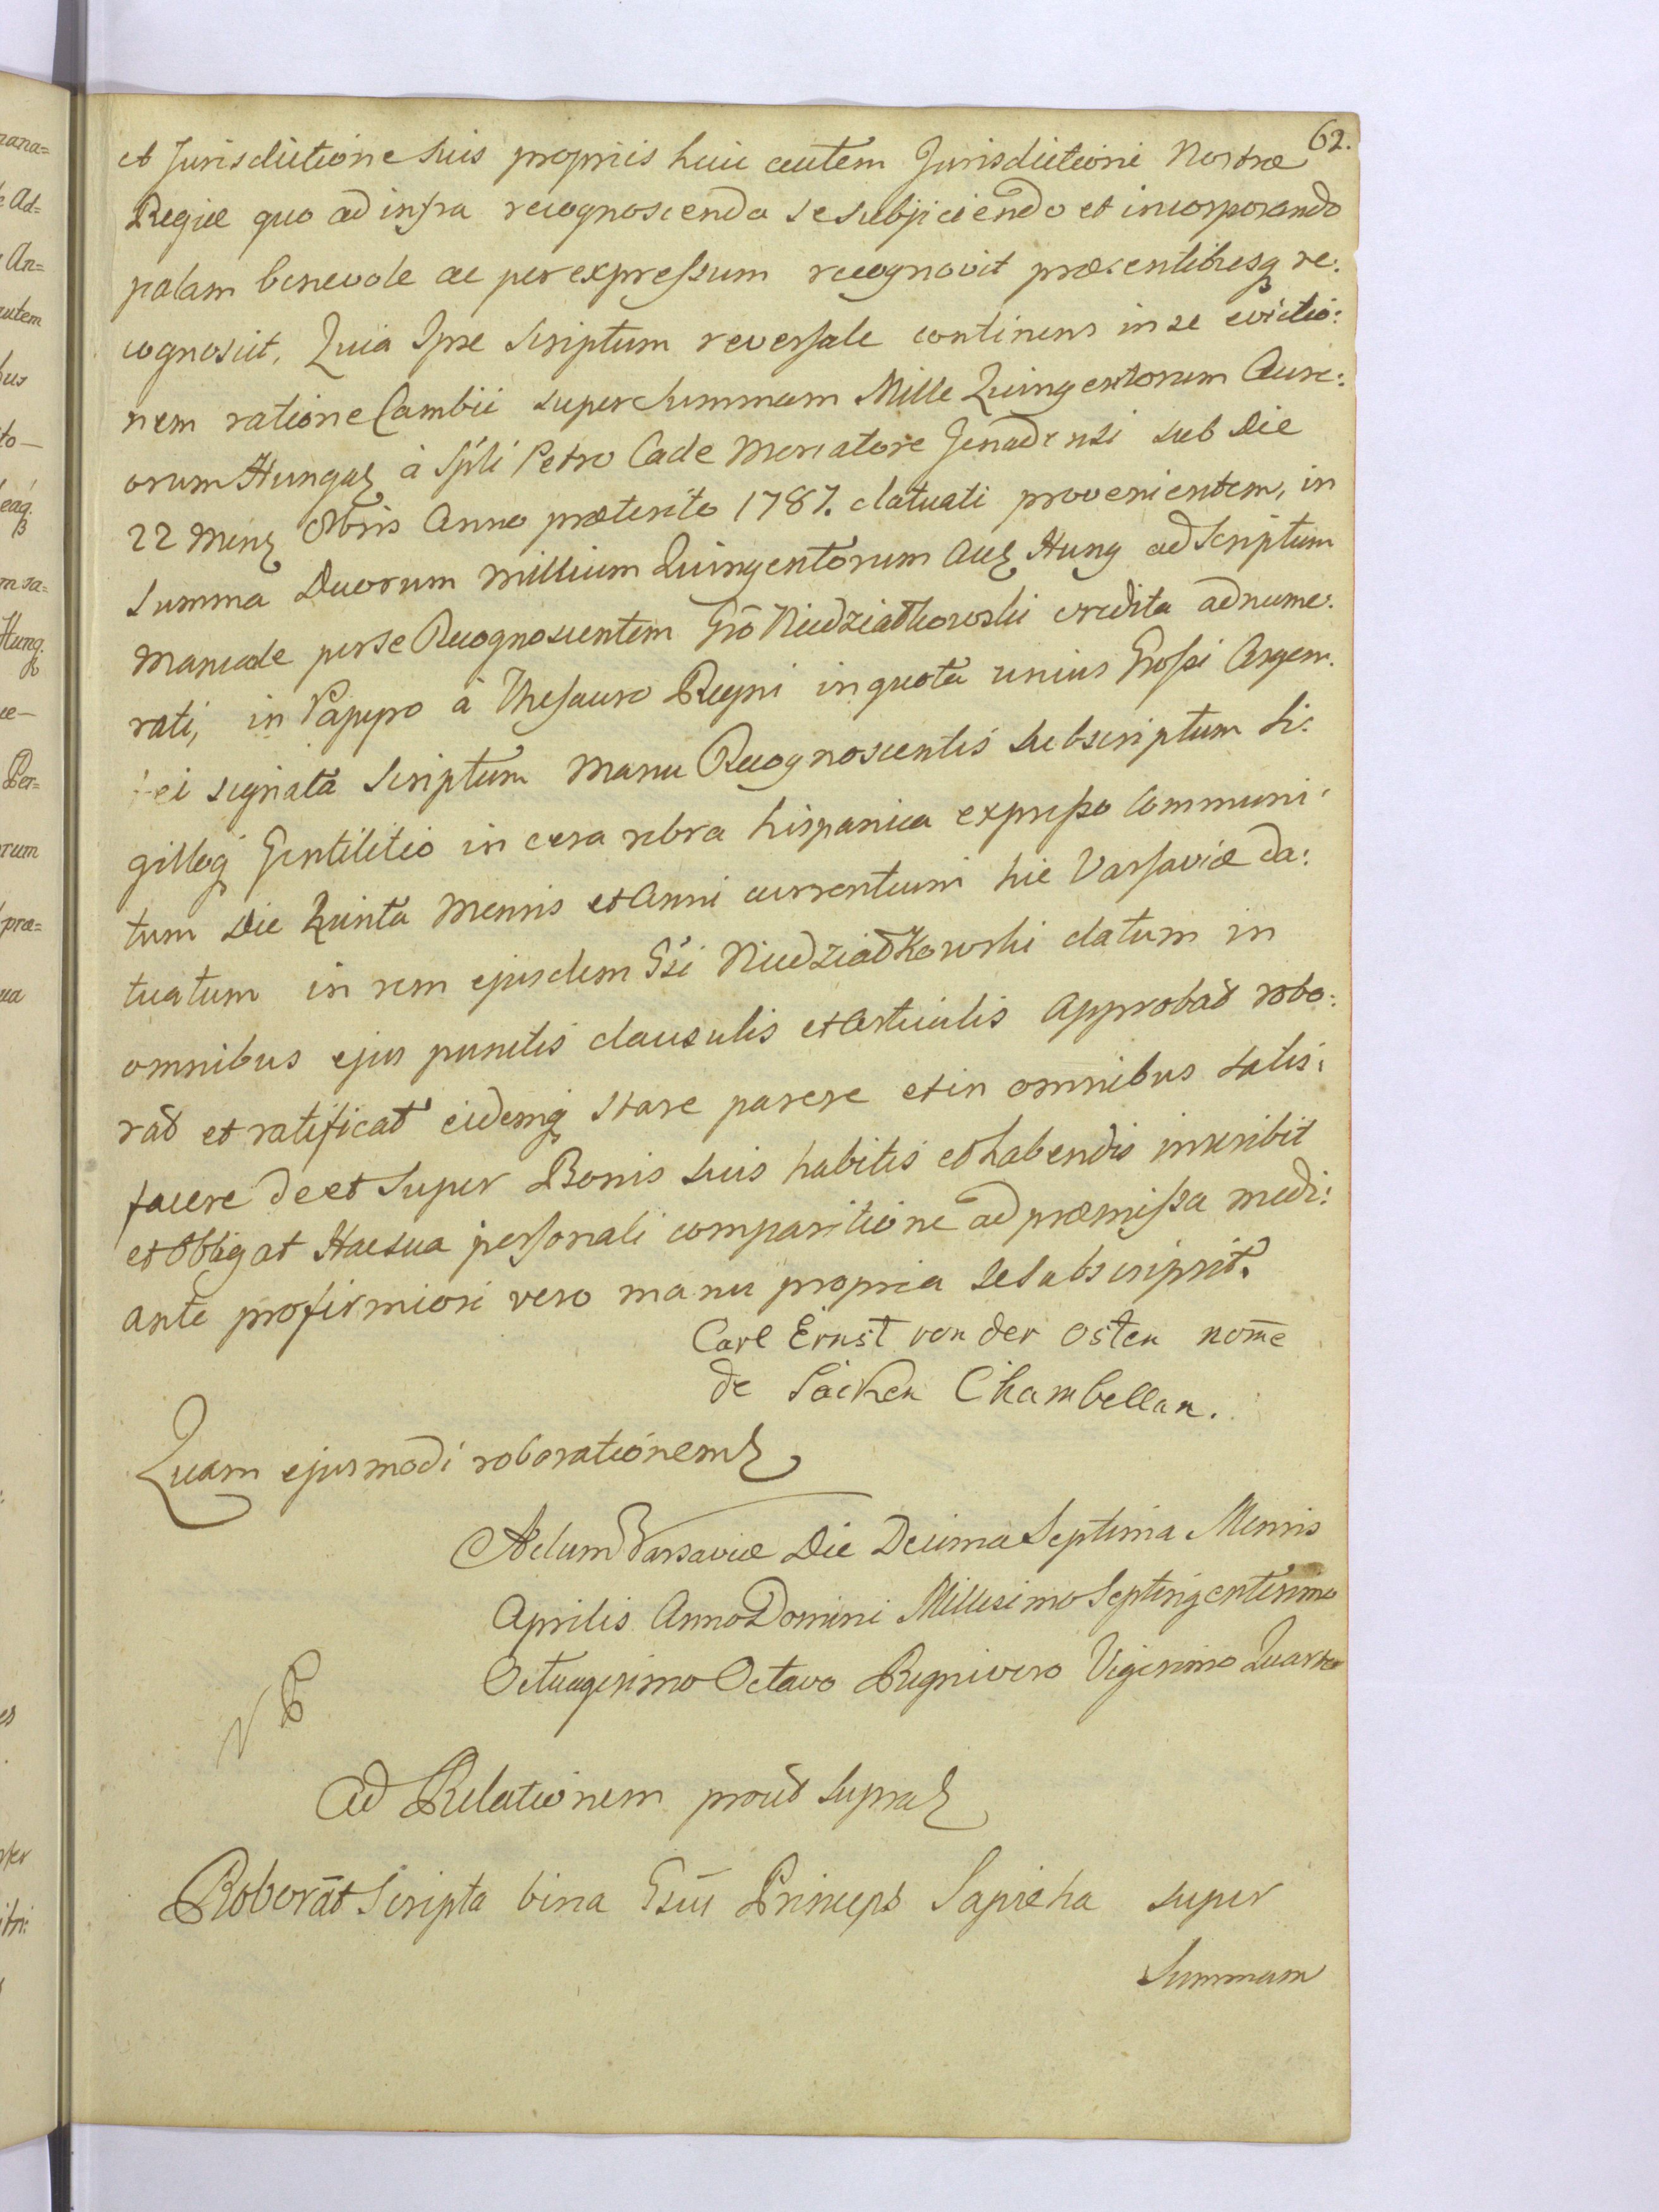 62.
et Jurisdictione suis propriis huic autem Jurisdictioni Nostræ
Regiæ quo ad infra recognoscenda se subjiciendo et incorporando
palam benevole ac per expressum recognovit præsentibusq re:
cognoscit, Quia Ipse Scriptum reversale continens in se evictio:
nem ratione Cambii super summam Mille Quingentorum Aure:
orum Hungar à Spli Petro Cade Mercatore Jenadensi sub Die
22 Mens Obris Anno præterito 1787. datuati provenientem, in
Summa Duorum Millium Quingentorum Aur Hung ad Scriptum
Manuale per se Recognoscentem Gso Niedziałkowski credita adnume:
rati, in Papyro à Thesauro Regni in quota unius Grossi Argen:
tei signata Scriptum Manu Recognoscentis subscriptum Si:
gilloq Gentilitio in cera rubra hispanica expresso communi:
tum Die Quinta Mensis et Anni currentium hic Varsaviæ da:
tuatum in rem ejusdem Gsi Niedziałkowski datum in
omnibus ejus punctis clausulis et Articulis Approbat robo:
rat et ratificat eidemq stare parere et in omnibus satis:
facere de et super Bonis suis habitis et habendis inscribit
et Obligat Hac sua personali comparitione ad præmissa medi:
ante pro firmiori vero manu propria se subscripsit.
Carl Ernst von der Osten nome
de Sacken Chambellan.
Quam ejusmodi roborationem
Actum Varsaviæ Die Decima Septima Mensis
Aprilis Anno Domini Millesimo Septingentesimo
Octuagesimo Octavo Regni vero Vigesimo Quarto
Ad Relationem prout supra
Roborat Scripta bina Gsus Princeps Sapieha super
Summam